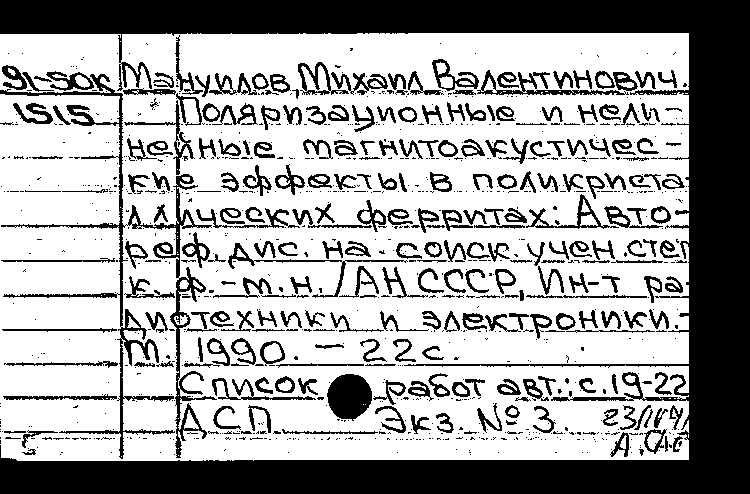 91-50к Мануилов, Михаил Валентинович.
1515 Поляризационные и нели-
нейные магнитоакустичес-
кие эффекты в поликриста-
ллических ферритах: Авто-
реф. дис. на соиск. учен. степ
к. ф.-м.н. / АН СССР, Ин-т ра-
диотехники и электроники. -
М. 1990. - 22 с.
Список работ авт.: с. 19-22
ДСП. Экз. № 3.